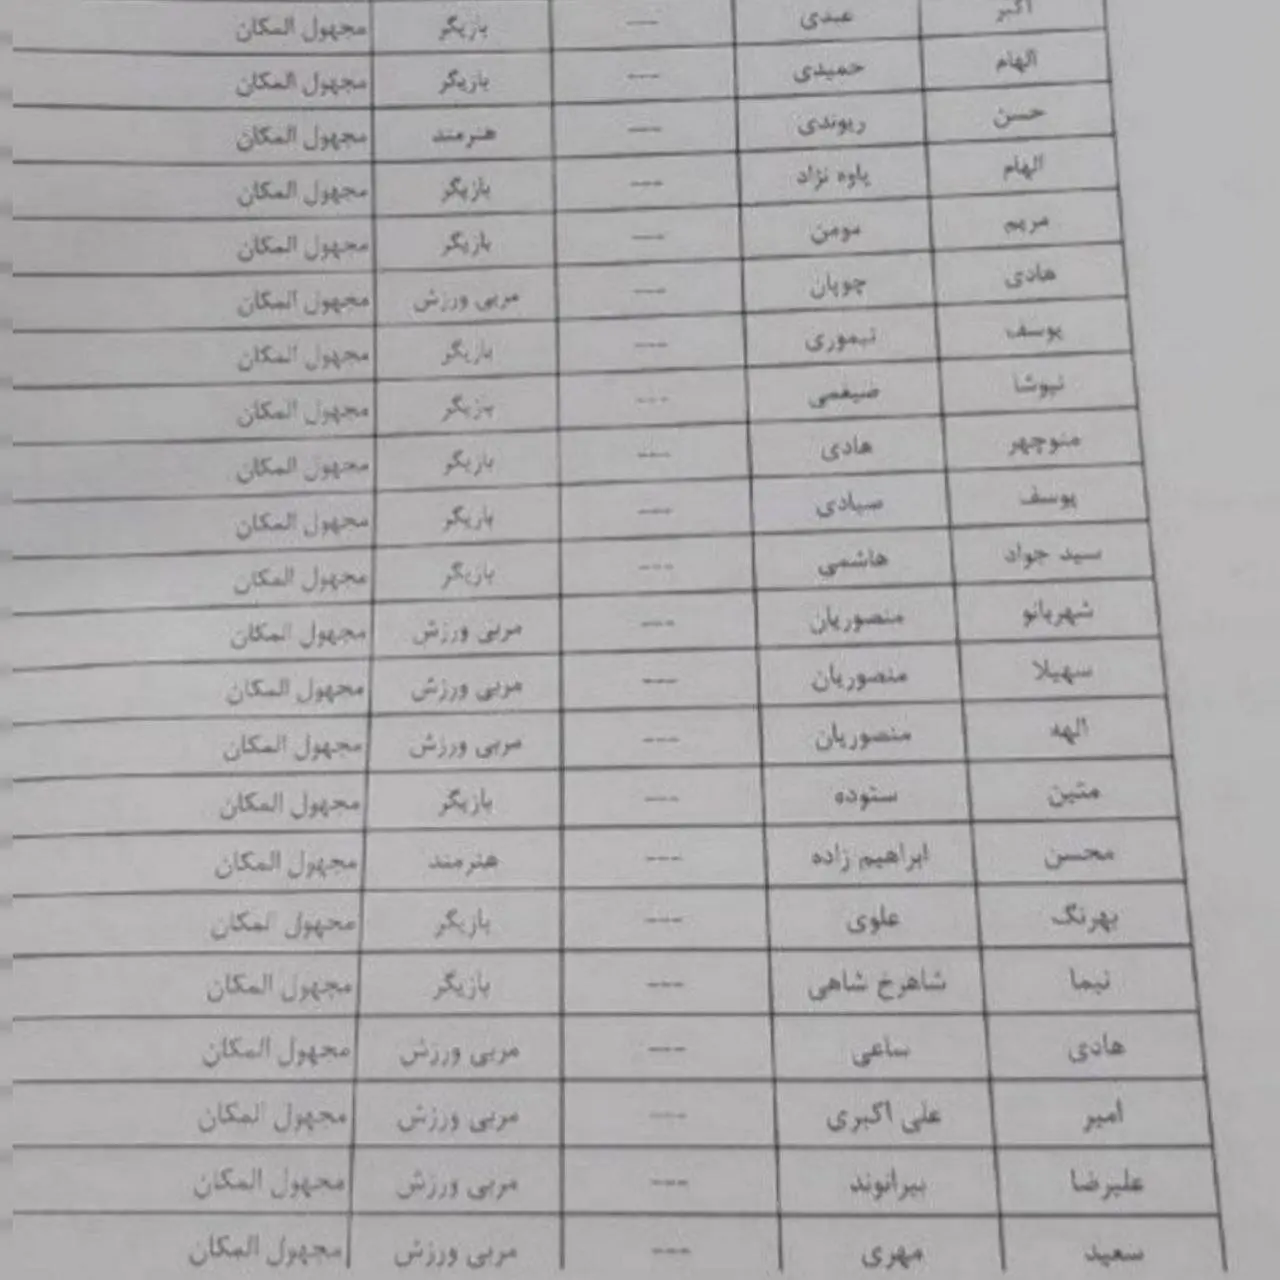 اکبر عبدی --- بازیگر مجهول المکان
الهام حمیدی --- بازیگر مجهول المکان
حسن ریوندی --- هنرمند مجهول المکان
الهام پاوه نژاد --- بازیگر مجهول المکان
مریم مومن --- بازیگر مجهول المکان
هادی چوپان --- مربی ورزش مجهول المکان
یوسف تیموری --- بازیگر مجهول المکان
نیوشا ضیغمی --- بازیگر مجهول المکان
منوچهر هادی --- بازیگر مجهول المکان
یوسف صیادی --- بازیگر مجهول المکان
سید جواد هاشمی --- بازیگر مجهول المکان
شهربانو منصوریان --- مربی ورزش مجهول المکان
سهیلا منصوریان --- مربی ورزش مجهول المکان
الهه منصوریان --- مربی ورزش مجهول المکان
متین ستوده --- بازیگر مجهول المکان
محسن ابراهیم زاده --- هنرمند مجهول المکان
بهرنگ علوی --- بازیگر مجهول المکان
نیما شاهرخ شاهی --- بازیگر مجهول المکان
هادی ساعی --- مربی ورزش مجهول المکان
امیر علی اکبری --- مربی ورزش مجهول المکان
علیرضا بیرانوند --- مربی ورزش مجهول المکان
سعید مهری --- مربی ورزش مجهول المکان